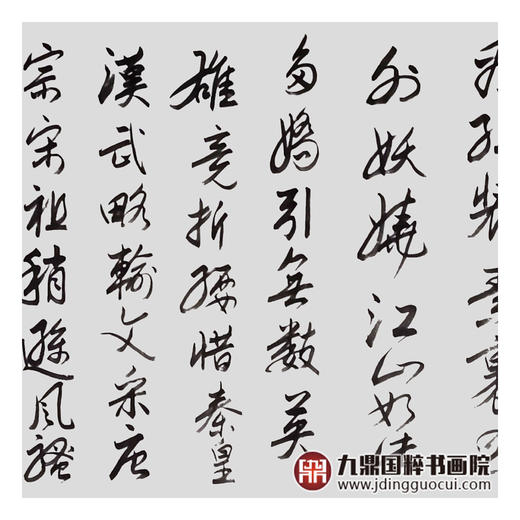 红装素裹
外妖娆江山如此
多娇引无数英
雄竞折腰惜秦皇
漢武略輸文采唐
宗宋祖稍遜风骚
九鼎国粹书画院
www.jdingguocui.com